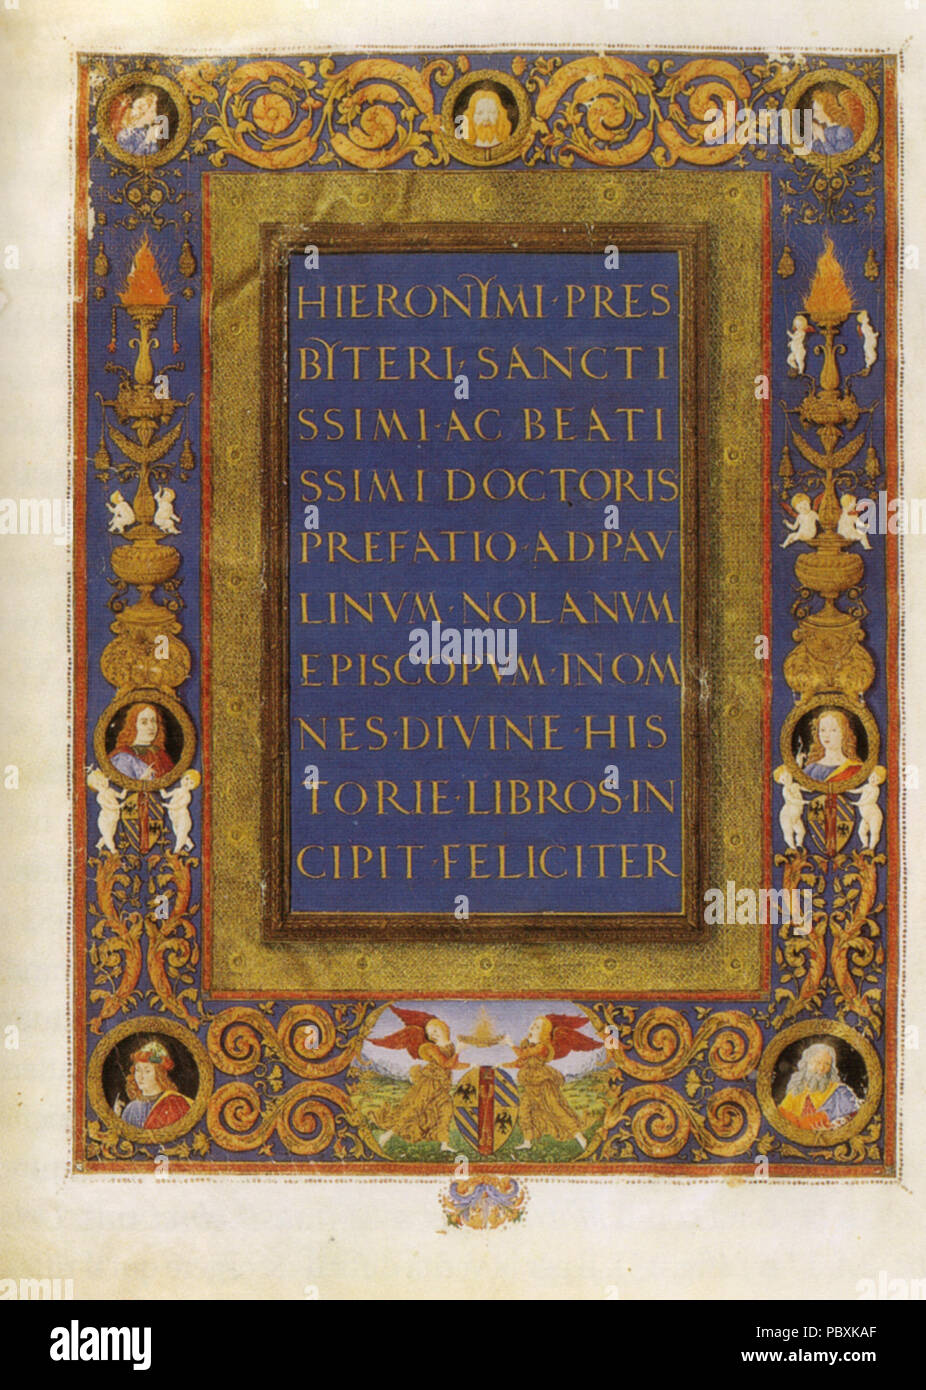 HIERONYMI·PRES
BYTERI·SANCTI
SSIMI·AC BEATI
SSIMI DOCTORIS
PREFATIO·ADPAV
LINVM·NOLANVM
EPISCOPVM·IN OM
NES·DIVINE·HIS
TORIE·LIBROS·IN
CIPIT·FELICITER
alamy
alamy stock photo
PBXKAF
www.alamy.com